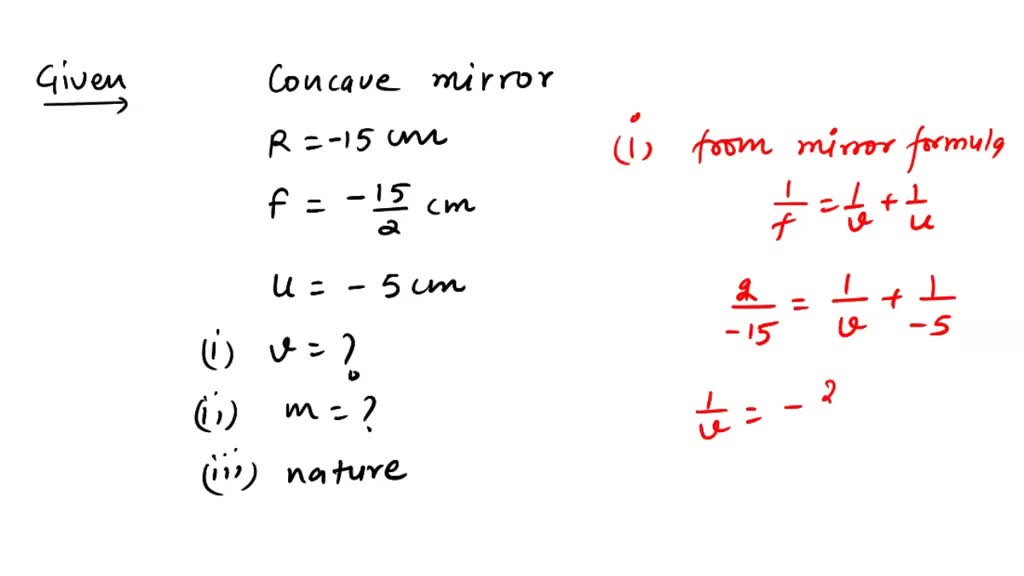 Given
Concave mirror
R = -15 cm
f = -15/2 cm
u = - 5 cm
(i) v = ?
(ii) m = ?
(iii) nature
(i) from mirror formula
1/f = 1/v + 1/u
2/-15 = 1/v + 1/-5
1/v = - 2